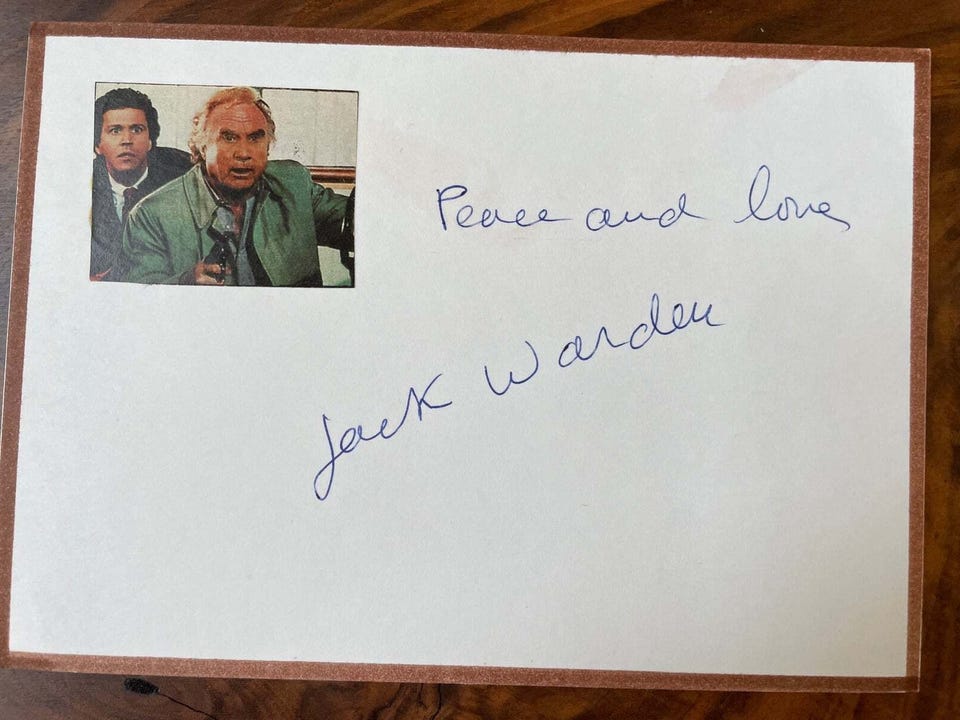 Peace and love
Jack Warden